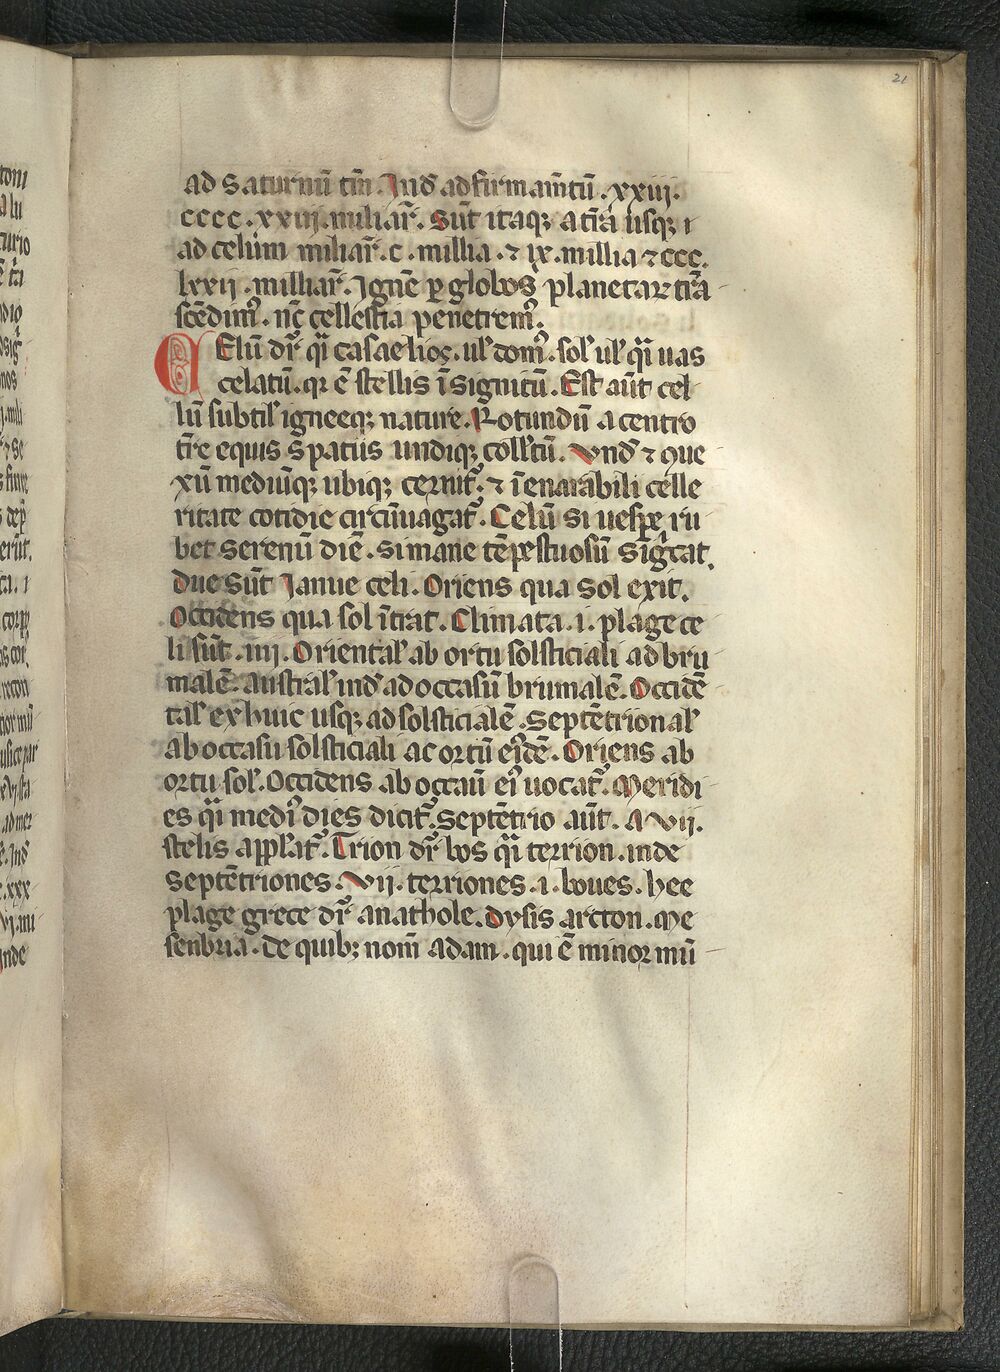 21
ad Saturnū tm̄. Jnd̄ ad firmam̄tū. xxiij.
cccc. xxiij. miliar̄. Sūt itaq; a t̄ra usq; i
ad celum miliar̄. c. millia. ⁊ ix. millia ⁊ ccc.
lxxij. milliar̄. Ignē p globos planetaꝝ t̄rā
scēdim᷒. nc̄ cellestia penetrem᷒.
Celū dr̄ q̄i casa elios. ul̄ dom᷒. sol̄ ul̄ q̄i uas
celatū. qr ē stellis īsignitū. Est aūt cel
lū subtil̄ igneeq; nature. Rotundū a centro
t̄re equis spatiis undiq; coll̄tū. Vnd̄ ⁊ ꝯue
xū mediūq; ubiq; cernit᷑. ⁊ īenarabili celle
ritate cotidie circūuagat᷑. Celū si uesꝑe ru
bet serenū diē. si mane tēpestuosū sigcat.
due sūt Janue celi. Oriens qua sol exit.
Occidens qua sol ītrat. Climata .i. plage ce
li sūt .iiij. Oriental̄ ab ortu solsticiali ad bru
malē. Austral̄ ind̄ ad occasū brumalē. Occidē
tal̄ ex huic usq; ad solsticialē. Septētrional̄
ab occasu solsticiali ac ortū ei᷒dē. Oriens ab
ortu sol̄. Occidens ab occaū ei᷒ uocat᷑. Meridi
es q̄i medi᷒ dies dicit᷑. Septētrio aūt. A vij.
stelis appl̄at᷑. Trion dr̄ bos q̄i terrion. inde
septētriones. Vij. terriones .i. boues. hee
plage grece dr̄ anathole. Dysis arcton. Me
senbria. de quib; nom̄ adam. qui ē minor mū